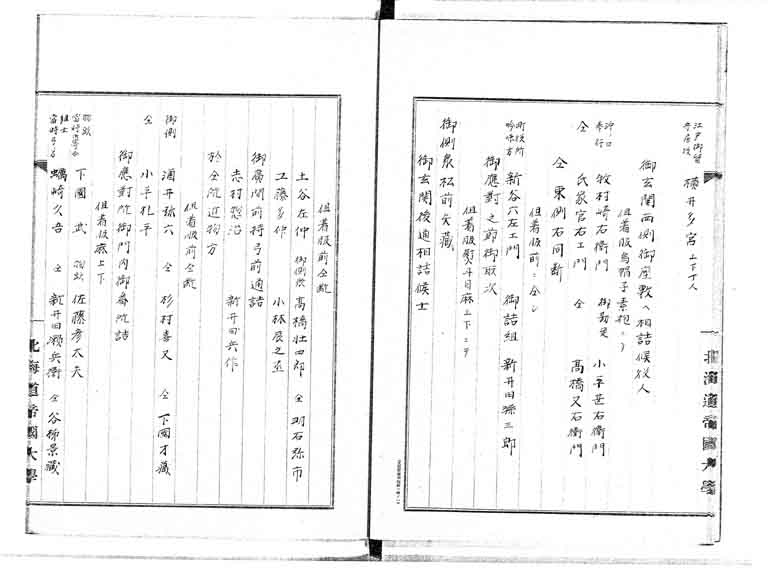 江戸御留
横井多宮 上下丁人
御玄関両側御座敷へ相詰候役人
但着服烏帽子素袍
沖ノ口奉行 牧村崎右衛門 小平甚右衛門
仝 氏家宮右エ門 仝 高橋又右衛門
仝 東側右同断
但着服前ニ仝シ
町役所吟味方 新谷六左エ門 御詰組 新井田孫三郎
御應對之節御取次
但着服熨斗目麻上下ニテ
御側衆 松前矢藏
御玄関後通相詰候士
但着服前仝断
土谷左仲 高橋壮四郎 仝 明石弥市
工藤多仲 小林辰之丞
御廣間前持弓前通詰
志村愁治 新井田兵作
於仝所近物方
但着服前仝断
御側 酒井弥六 仝 杉村喜又 仝 下國才藏
仝 小平杜平
御應對所御門内御番所詰
但着服麻上下
下國武 佐藤彦太夫
蠣崎久吾 仝 新井田瀬兵衛 仝 谷梯景藏
北海道帝國大學
北海道帝國大學